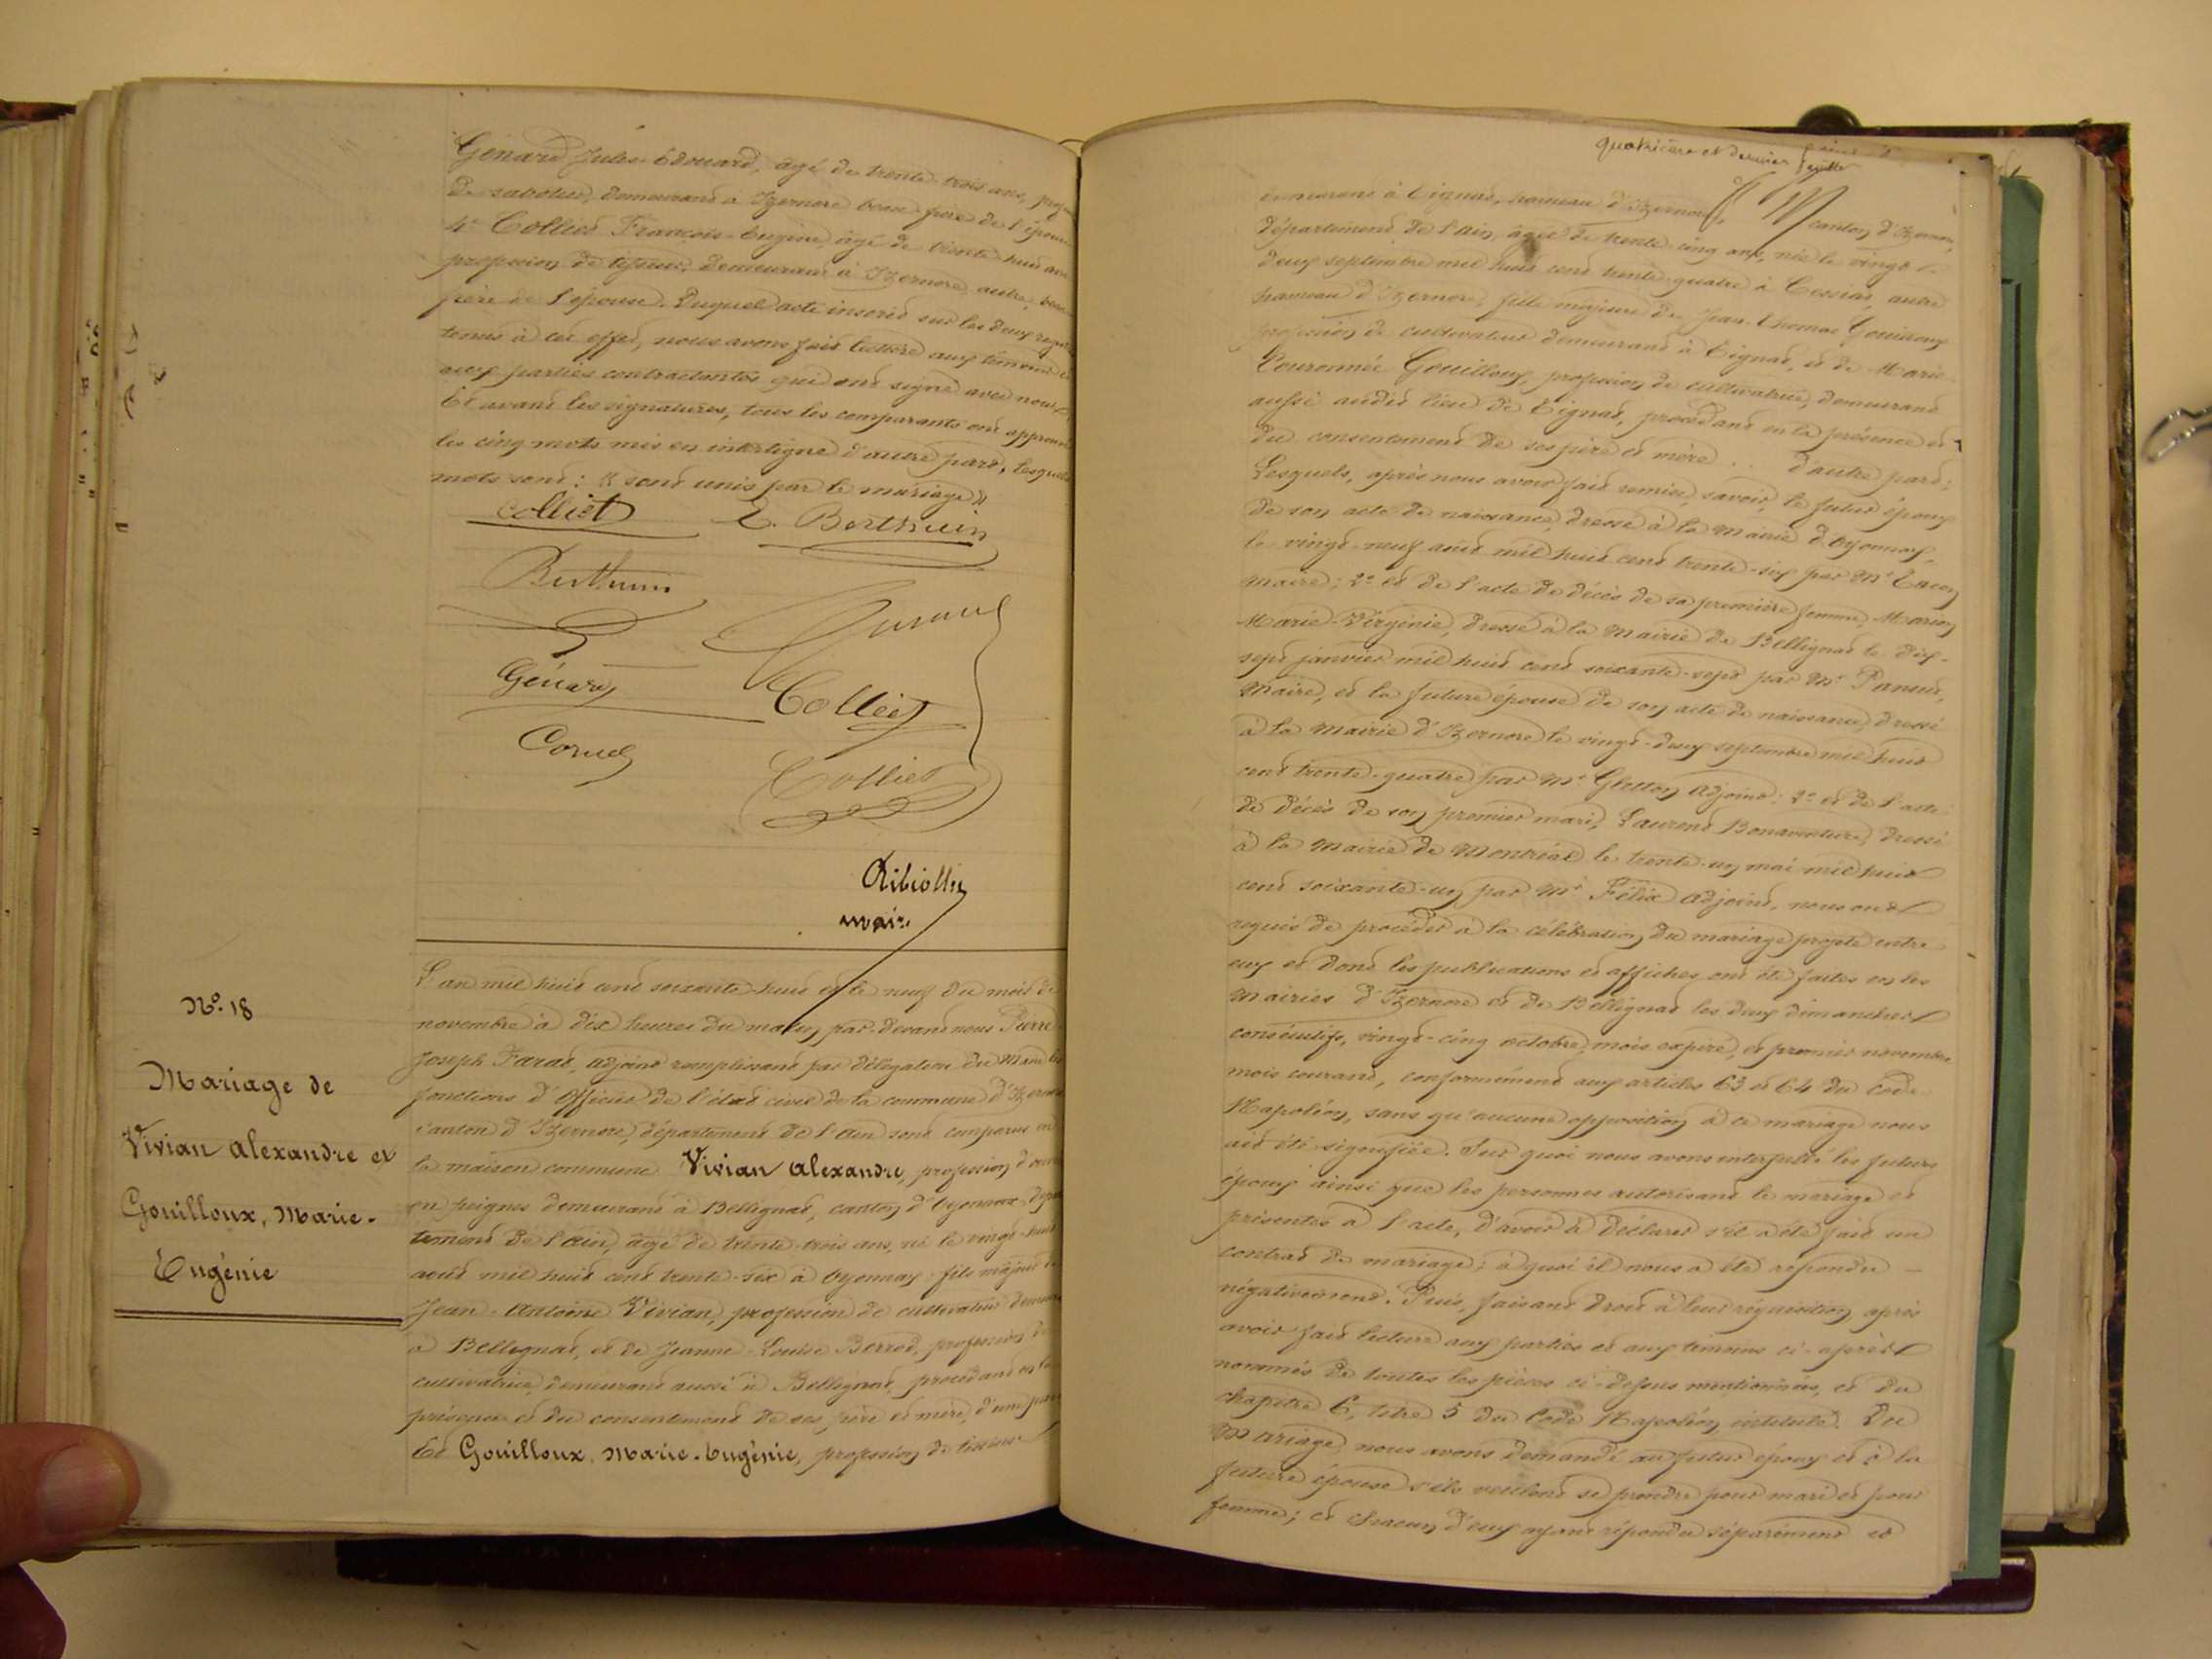 Génard Jules-Edouard, âgé de trente-trois ans, prof
de sabotier, demeurant à Izernore beau-frère de l'épouse
4° Colliet François-Eugène, âgé de trente-huit ans
profession de tisseur, demeurant à Izernore, autre beau
frère de l'épouse. Duquel acte inscrit sur les deux regis
tenus à cet effet, nous avons fait lecture aux témoins et
aux parties contractantes qui ont signé avec nous.
Et avant les signatures, tous les comparants ont approuvé
les cinq mots mis en interligne d'autre part, lesquels
mots sont: « sont unis par le mariage »
Colliet E. Berthuin
Berthuin
Génard
Colliet
Cornet
Colliet
maire
N° 18
Mariage de
Vivian Alexandre et
Gouilloux, Marie-
Eugénie
L'an mil huit cent soixante-huit et le neuf du mois de
novembre à dix heures du matin, par-devant nous Pierre
Joseph Farat, adjoint remplissant par délégation du Maire les
fonctions d'officier de l'état civil de la commune d'Izernore
canton d'Izernore, département de l'Ain sont comparus en
la maison commune Vivian Alexandre, profession d'ouv
en peignes demeurant à Bellignat, canton d'Oyonnax, dépar
tement de l'Ain, âgé de trente-trois ans, né le vingt-huit
août mil huit cent trente-six à Oyonnax, fils majeur de
Jean-Antoine Vivian, profession de cultivateur demeur
à Bellignat, et de Jeanne-Louise Berrod, profession de
cultivatrice, demeurant aussi à Bellignat, procédant en la
présence et du consentement de ses père et mère, d'une part
Et Gouilloux, Marie-Eugénie, profession de tisseuse
quatrième et dernier feuillet
demeurant à Tignat, hameau d'Izernore, canton d'Izernore,
département de l'Ain, âgée de trente-cinq ans, née le vingt-
deux septembre mil huit cent trente-quatre à Cessiat, autre
hameau d'Izernore, fille majeure de Jean-Thomas Gouilloux
profession de cultivateur demeurant à Tignat, et de Marie-
Couronnée Gouilloux, profession de cultivatrice, demeurant
aussi audit lieu de Tignat, procédant en la présence et
du consentement de ses père et mère .. d'autre part;
Lesquels, après nous avoir fait remise, savoir, le futur époux
de son acte de naissance, dressé à la Mairie d'Oyonnax,
le vingt-neuf août mil huit cent trente-six par Mr
maire; 2° et de l'acte de décès de sa première femme, Marion
Marie-Virginie, dressé à la Mairie de Bellignat le dix-
sept janvier mil huit cent soixante-sept par Mr
Maire, et la future épouse de son acte de naissance, dressé
à la Mairie d'Izernore le vingt-deux septembre mil huit
cent trente-quatre par Mr Gletton Adjoint; 2° et de l'acte
de décès de son premier mari, Laurent Bonaventure, dressé
à la Mairie de Montréal le trente-un mai mil huit
cent soixante-un par Mr Félix Adjoint, nous ont
requis de procéder à la célébration du mariage projeté entre
eux et dont les publications et affiches ont été faites en les
Mairies d'Izernore et de Bellignat les deux dimanches
consécutifs, vingt-cinq octobre, mois expiré, et premier novembre
mois courant, conformément aux articles 63 et 64 du Code
Napoléon, sans qu'aucune opposition à ce mariage nous
ait été signifiée. Sur quoi nous avons interpellé les futurs
époux ainsi que les personnes autorisant le mariage et
présentes à l'acte, d'avoir à déclarer s'il a été fait un
contrat de mariage; à quoi il nous a été répondu —
négativement. Puis, faisant droit à leur réquisition, après
avoir fait lecture aux parties et aux témoins ci-après
nommés de toutes les pièces ci-dessus mentionnées, et du
chapitre 6, titre 5 du Code Napoléon, intitulé. Du
Mariage, nous avons demandé au futur époux et à la
future épouse s'ils veulent se prendre pour mari et pour
femme; et chacun d'eux ayant répondu séparément et